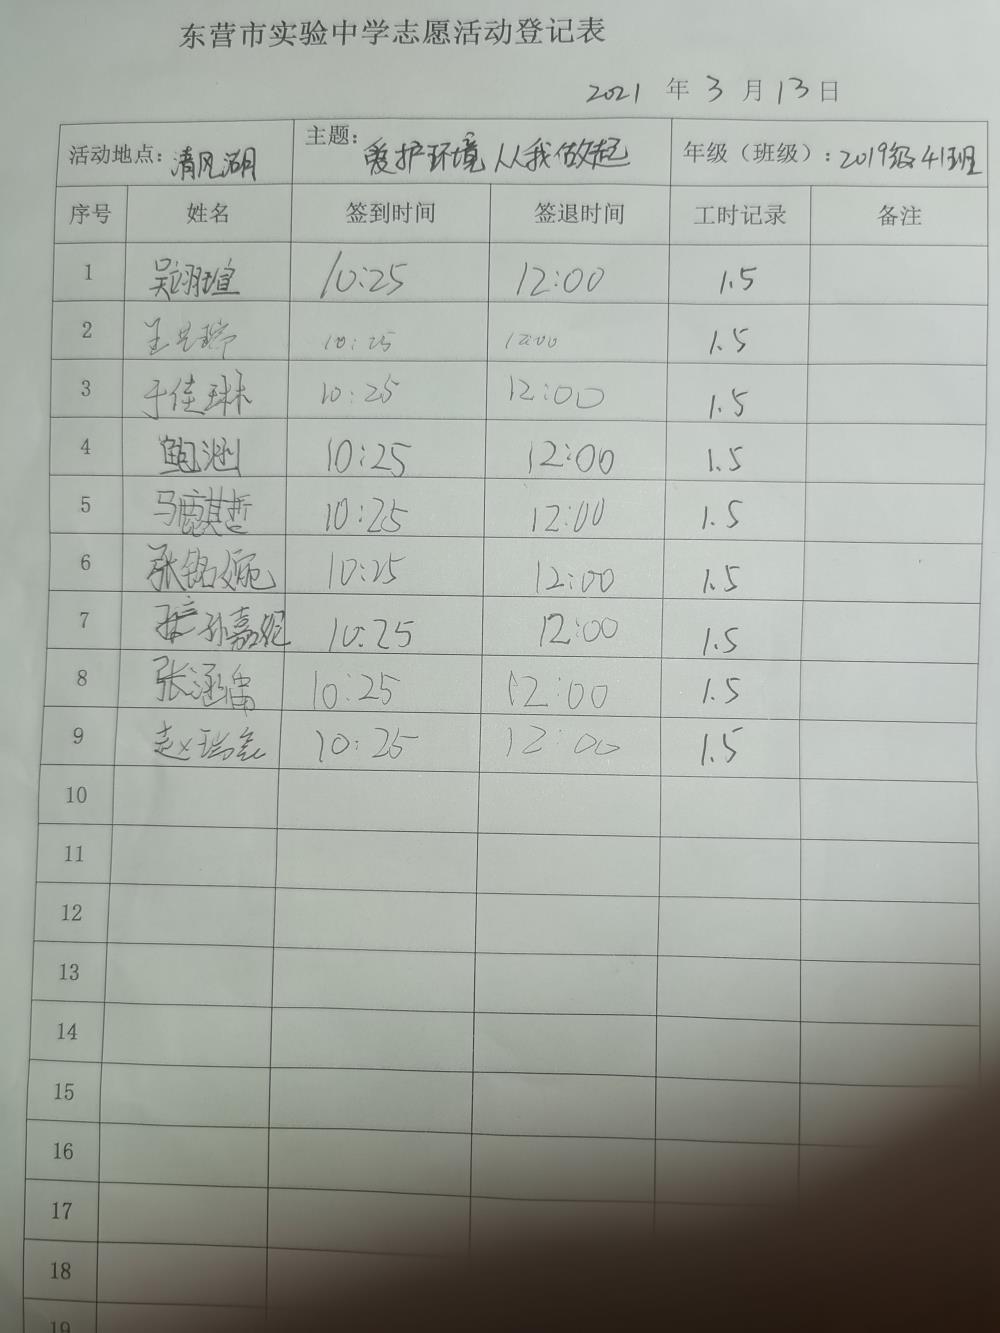 东营市实验中学志愿活动登记表
2021 年 3 月 13 日
活动地点：清风湖 主题：爱护环境 从我做起 年级（班级）：2019级41班
序号 姓名 签到时间 签退时间 工时记录 备注
1 吴翊瑄 10:25 12:00 1.5
2 10:25 12:00 1.5
3 于佳琳 10:25 12:00 1.5
4 鲍涵 10:25 12:00 1.5
5 马麒哲 10:25 12:00 1.5
6 张铭婉 10:25 12:00 1.5
7 孙嘉 10:25 12:00 1.5
8 张涵 10:25 12:00 1.5
9 赵瑞 10:25 12:00 1.5
10
11
12
13
14
15
16
17
18
19